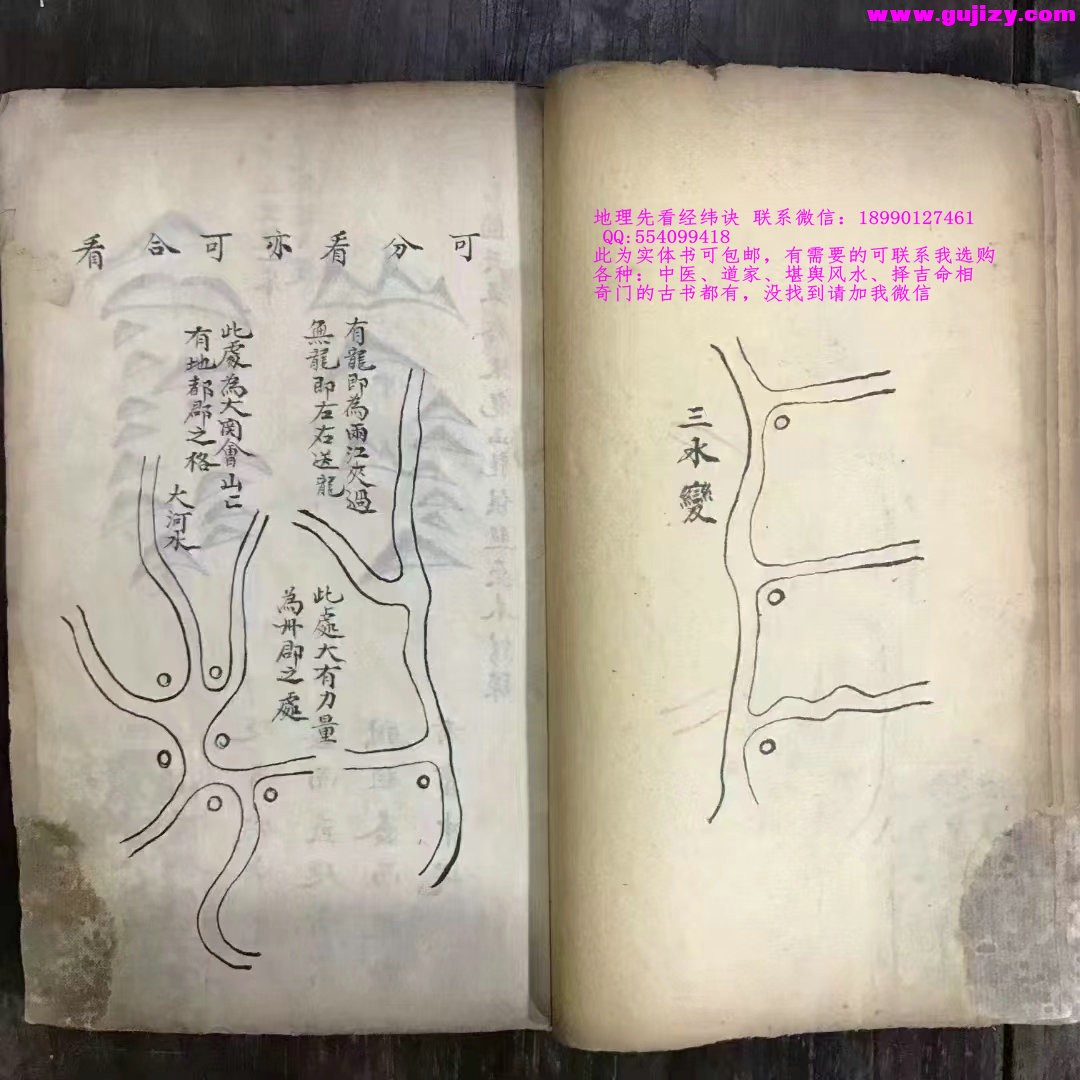 www.gujizy.com
地理先看经纬诀 联系微信：18990127461
QQ:554099418
此为实体书可包邮，有需要的可联系我选购
各种：中医、道家、堪舆风水、择吉命相
奇门的古书都有，没找到请加我微信
三水變
可分看亦可合看
有龍即為兩江夾過
無龍即左右送龍
此處為大関會山
有地都郡之格
大河水
此處大有力量
為州郡之處